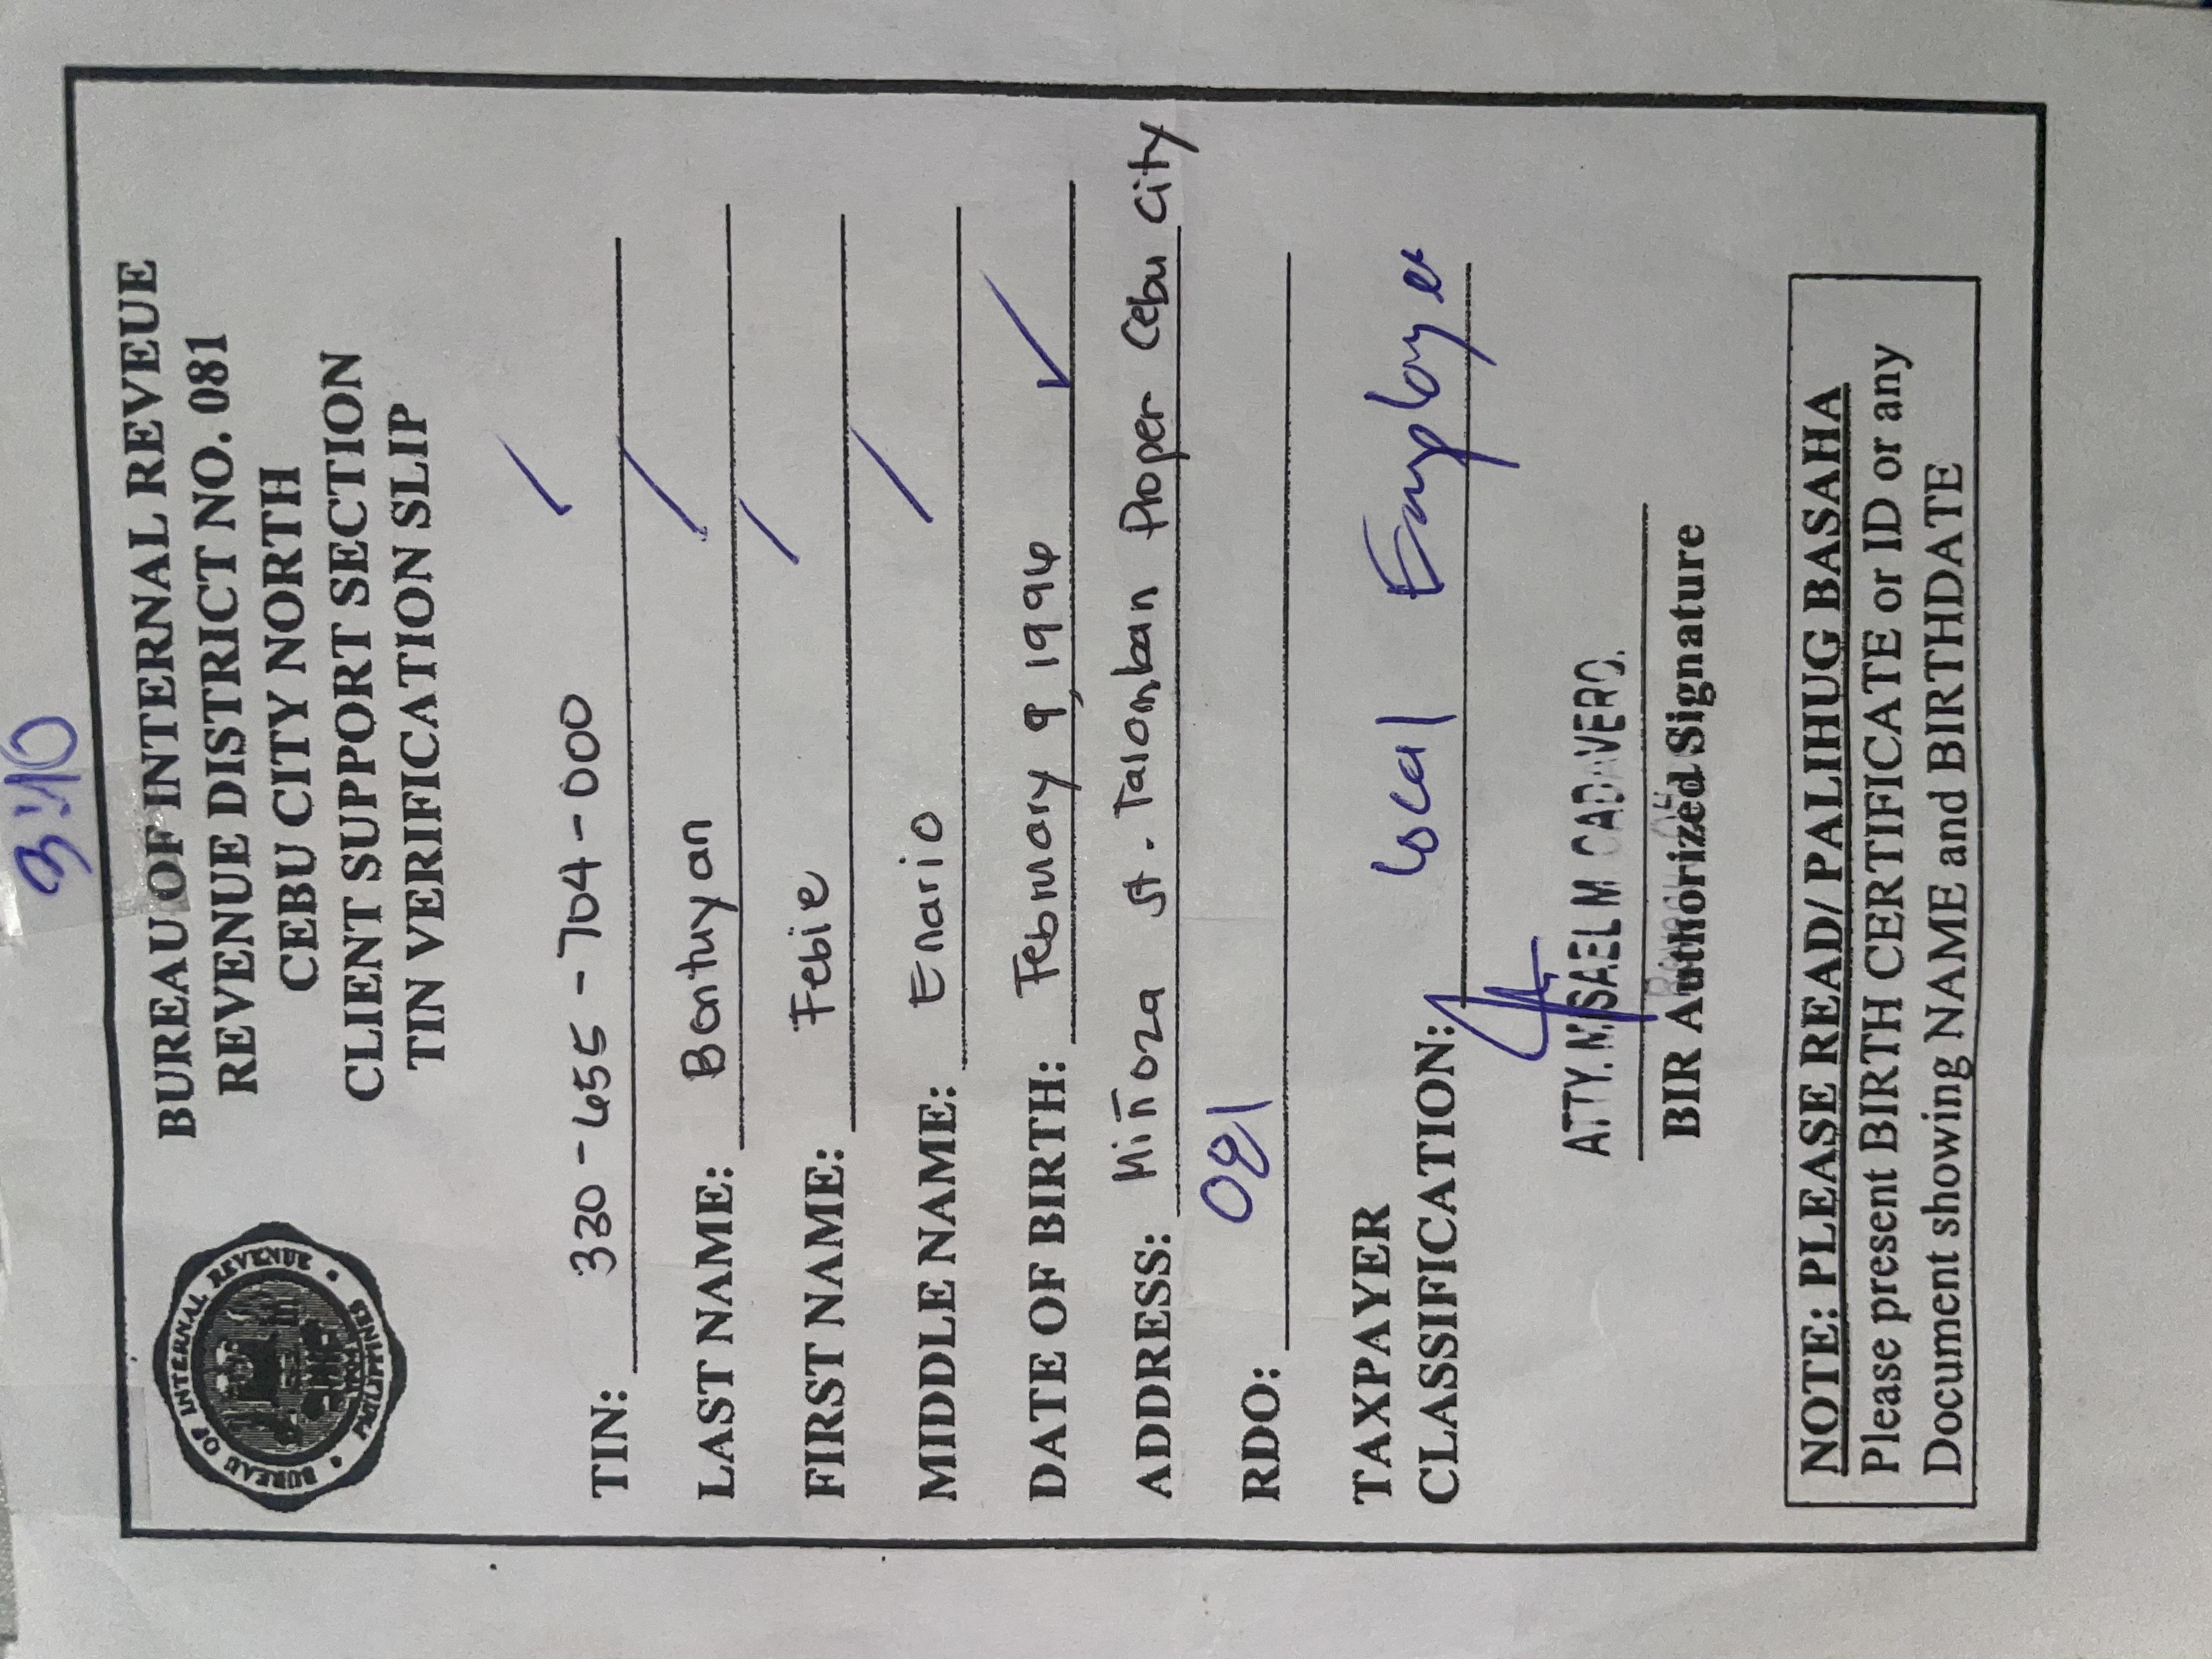 3:40
BUREAU OF INTERNAL REVEUE
REVENUE DISTRICT NO. 081
CEBU CITY NORTH
CLIENT SUPPORT SECTION
TIN VERIFICATION SLIP
BUREAU OF INTERNAL REVENUE
PHILIPPINES
TIN: 330-655-704-000
LAST NAME: Bontuyan
FIRST NAME: Febie
MIDDLE NAME: Enario
DATE OF BIRTH: February 9, 1996
ADDRESS: Miñoza st. Talomban Proper Cebu City
RDO: 081
TAXPAYER
CLASSIFICATION: Local Employee
ATTY. MISAEL M CADAVERO.
BIR Authorized Signature
NOTE: PLEASE READ/ PALIHUG BASAHA
Please present BIRTH CERTIFICATE or ID or any
Document showing NAME and BIRTHDATE